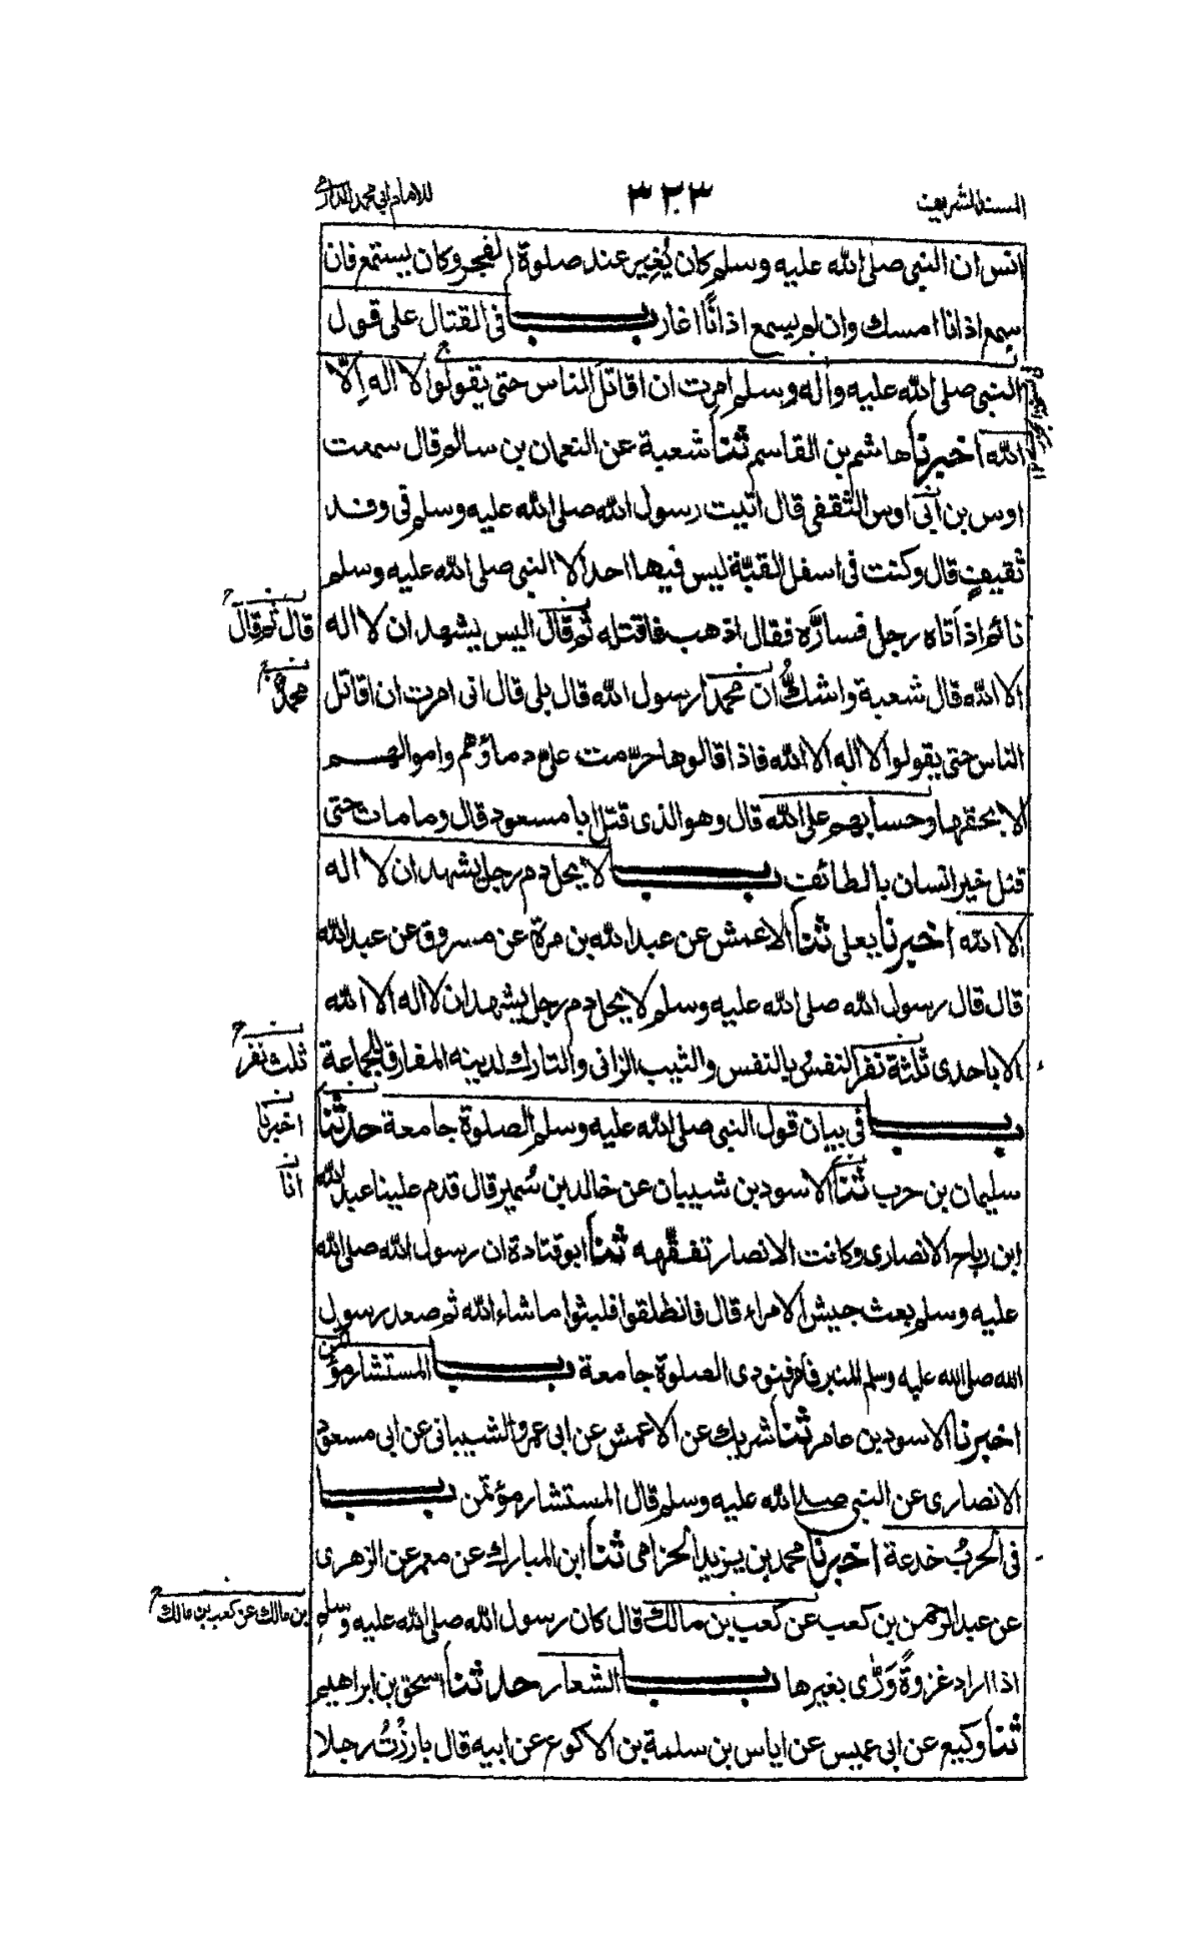 المسند الشريف
٣٢٣
للامام ابي محمد الدارمي
انس ان النبي صلى الله عليه وسلم كان يُغِير عند صلوة الفجر وكان يستمع فان
سمع اذانا امسك وان لم يسمع اذانًا اغار باب فى القتال على قول
النبي صلى الله عليه واله وسلم امرت ان اقاتل الناس حتى يقولوا لا اله اِلّا
الله اخبرنا هاشم بن القاسم ثنا شعبة عن النعمان بن سالم قال سمعت
اوس بن ابى اوس الثقفى قال اتيت رسول الله صلى الله عليه وسلم فى وفد
ثقيف قال وكنت فى اسفل القبّة ليس فيها احد الا النبي صلى الله عليه وسلم
نائم اذ اَتاه رجل فسارَّه فقال اذهب فاقتله ثم قال اليس يشهد ان لا اله
قال ثم قال
الا الله قال شعبة واشكُّ ان محمدا رسول الله قال بلى قال انى امرت ان اقاتل
محمدٌ
الناس حتى يقولوا لا اله الا الله فاذا قالوها حرّمت علىّ دماؤهم واموالهم
الا بحقها وحسابهم على الله قال وهو الذى قتل ابا مسعود قال وما مات حتى
قتل خير انسان بالطائف باب لا يحل دم رجل يشهد ان لا اله
الا الله اخبرنا يعلى ثنا الاعمش عن عبد الله بن مرة عن مسروق عن عبد الله
قال قال رسول الله صلى الله عليه وسلم لا يحل دم رجل يشهد ان لا اله الا الله
الا باحدى ثلثة نفر النفسُ بالنفس والثيب الزانى والتارك لدينه المفارق للجماعة
ثلث نفر
باب فى بيان قول النبي صلى الله عليه وسلم الصلوة جامعة حدثنا
اخبرنا
سليمان بن حرب ثنا الاسود بن شيبان عن خالد بن سُمير قال قدم علينا عبد الله
انا
ابن رباح الانصارى وكانت الانصار تفقّهه ثنا ابو قتادة ان رسول الله صلى الله
عليه وسلم بعث جيش الامراء قال فانطلقوا فلبثوا ما شاء الله ثم صعد رسول
الله صلى الله عليه وسلم المنبر فامر فنودى الصلوة جامعة باب المستشار مؤتمن
اخبرنا الاسود بن عامر ثنا شريك عن الاعمش عن ابى عمرو الشيبانى عن ابى مسعود
الانصارى عن النبي صلى الله عليه وسلم قال المستشار مؤتمن باب
فى الحربُ خدعة اخبرنا محمد بن يزيد الحزامى ثنا ابن المبارك عن معمر عن الزهرى
عن عبد الرحمن بن كعب عن كعب بن مالك قال كان رسول الله صلى الله عليه وسلم
بن مالك عن كعب بن مالك
اذا اراد غزوةً وَرّٰى بغيرها باب الشعار حدثنا اسحق بن ابراهيم
ثنا وكيع عن ابى عميس عن اياس بن سلمة بن الاكوع عن ابيه قال بارزْتُ رجلا